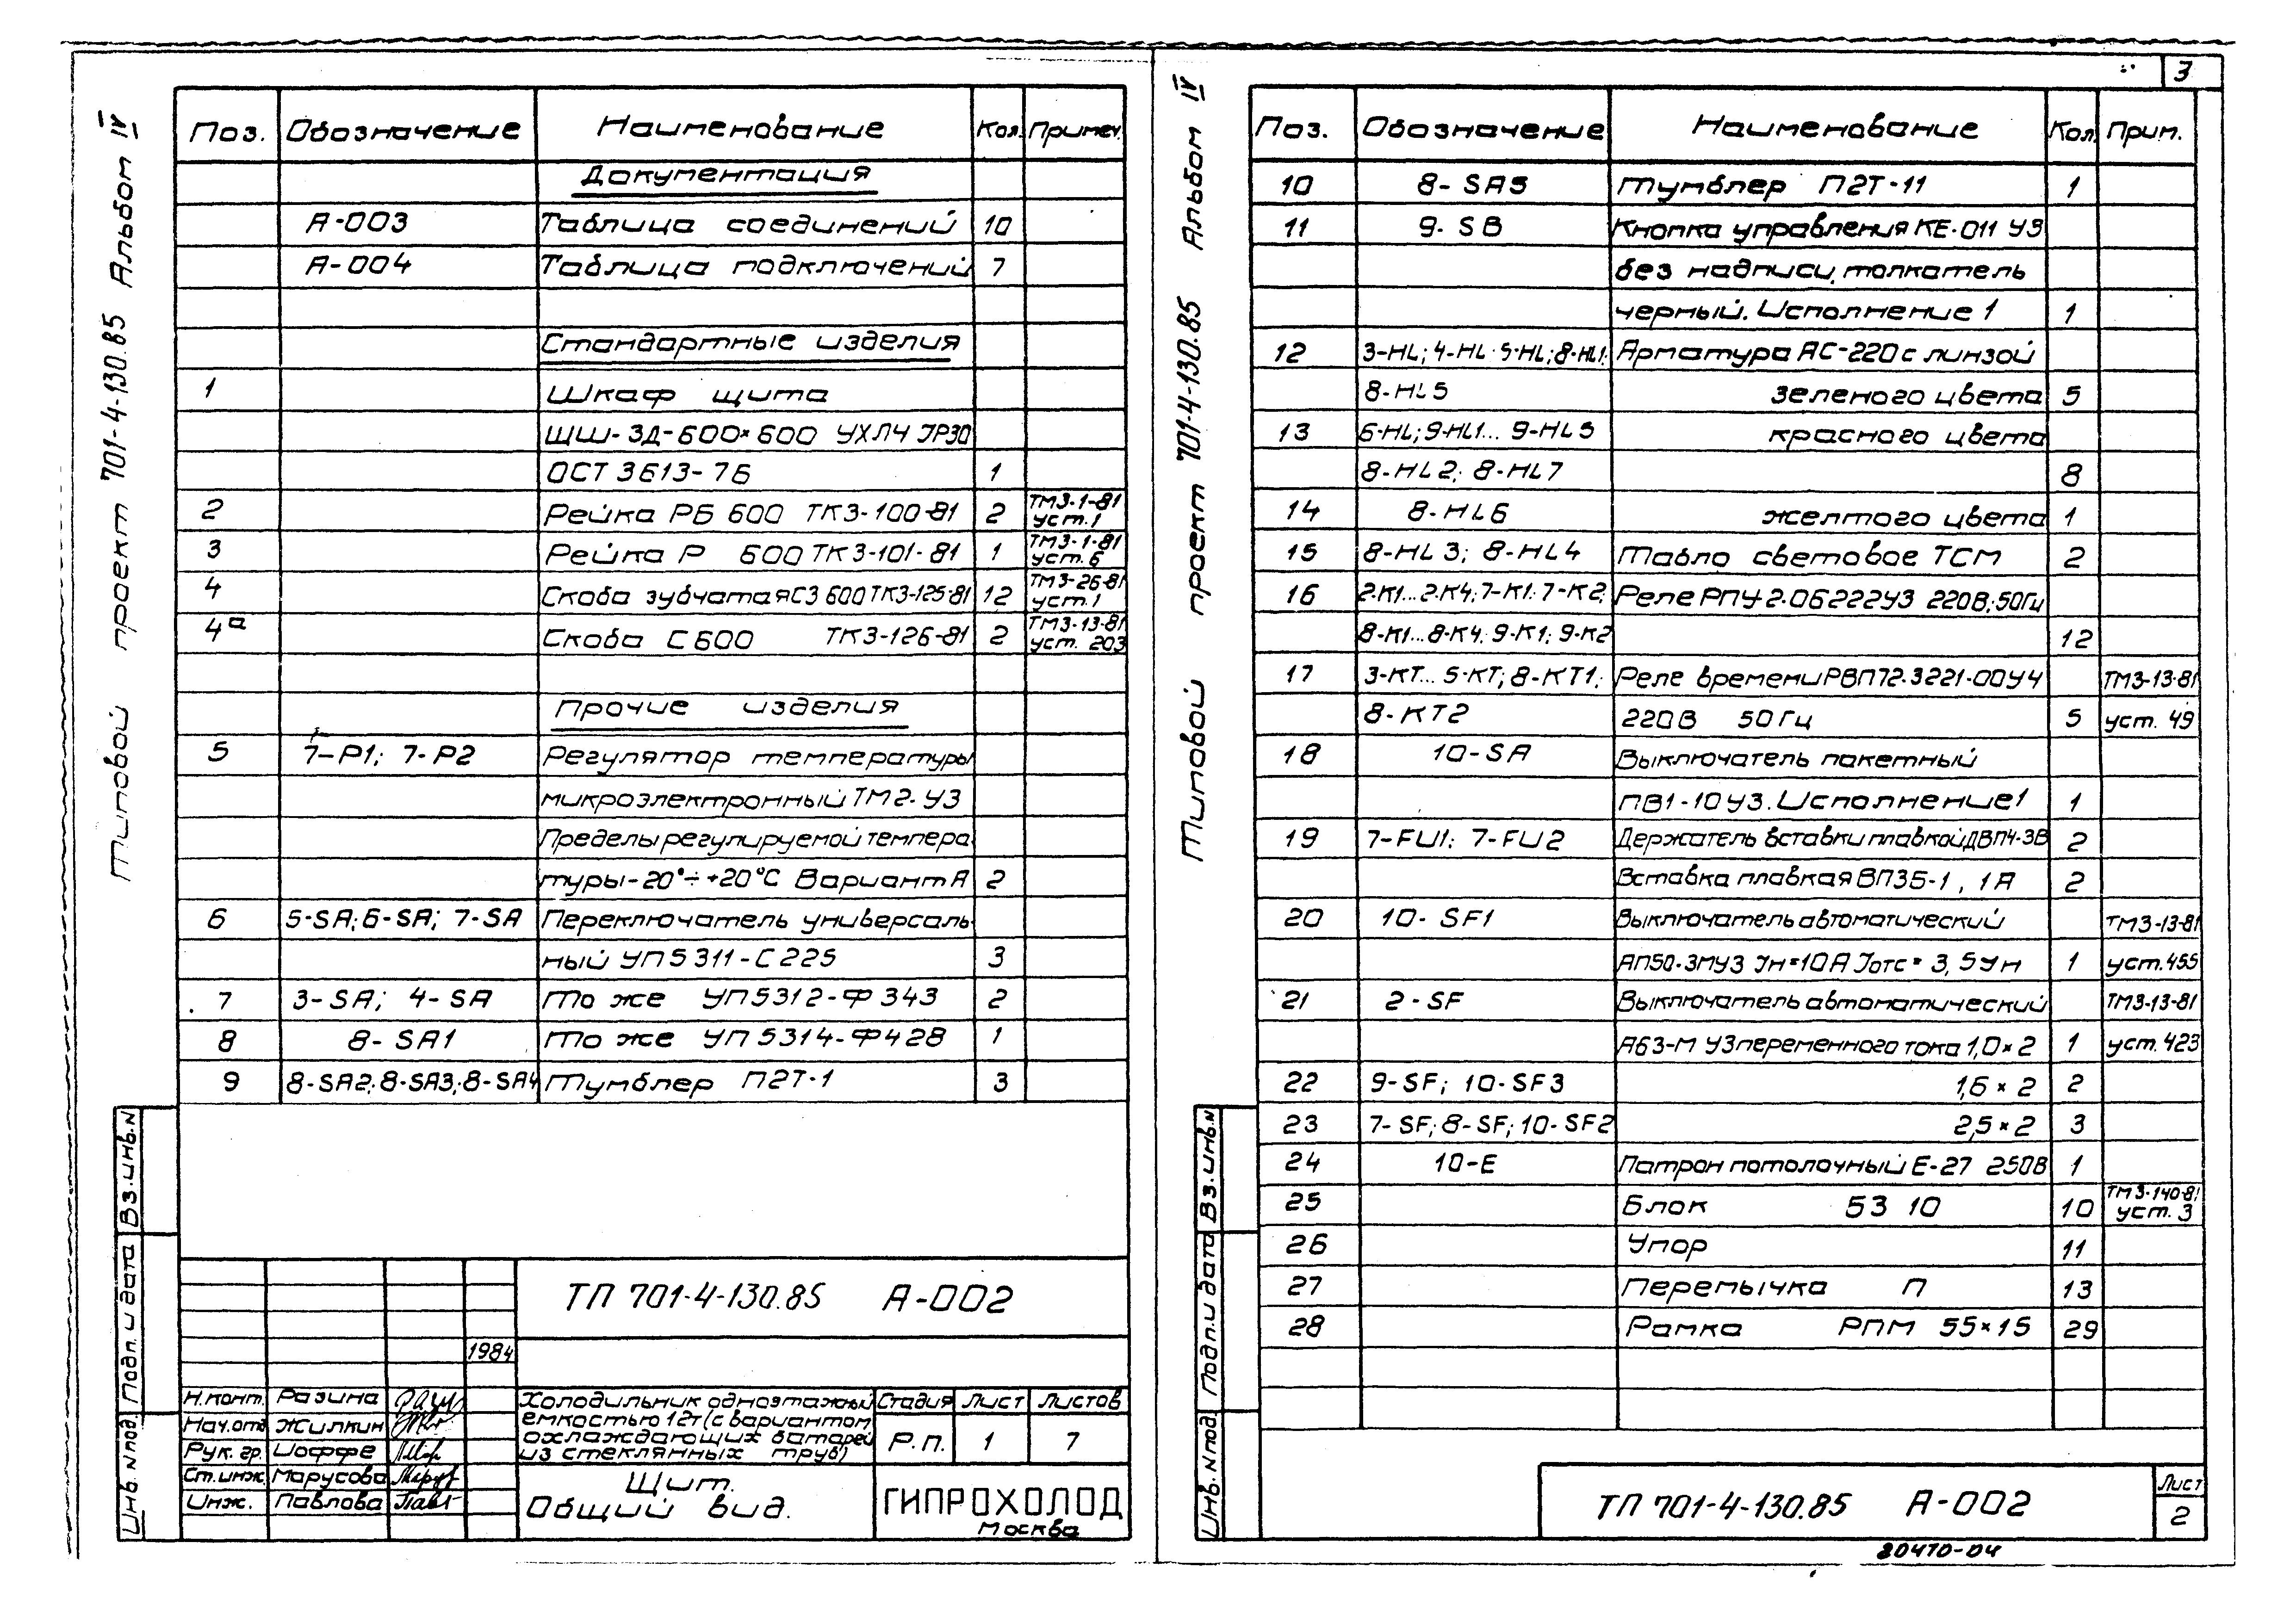 3
Типовой проект 701-4-130.85 Альбом IV
Поз. Обозначение Наименование Кол. Примеч.
Документация
А-003 Таблица соединений 10
А-004 Таблица подключений 7
Стандартные изделия
1 Шкаф щита
ЩШ-ЗД-600×600 УХЛ4 IP30
ОСТ 3613-76 1
2 Рейка РБ 600 ТК3-100-81 2 ТМ3-1-81 уст.1
3 Рейка Р 600 ТК3-101-81 1 ТМ3-1-81 уст. 6
4 Скоба зубчатая СЗ 600 ТК3-125-81 12 ТМ3-26-81 уст.1
4а Скоба С600 ТК3-126-81 2 ТМ3-13-81 уст. 203
Прочие изделия
5 7-Р1; 7-Р2 Регулятор температуры
микроэлектронный ТМ2-У3
Пределы регулируемой темпера
туры-20°÷+20°С Вариант А 2
6 5-SA; 6-SA; 7-SA Переключатель универсаль-
ный УП5311-С225 3
7 3-SA; 4-SA То же УП5312-Ф343 2
8 8-SA1 То же УП5314-Ф428 1
9 8-SA2; 8-SA3; 8-SA4 Тумблер П2Т-1 3
ТП 701-4-130.85 А-002
1984
Н.конт. Разина
Нач.отд Жилкин
Рук. гр. Иоффе
Ст.инж. Марусова
Инж. Павлова
Холодильник одноэтажный
емкостью 12т (с вариантом
охлаждающих батарей
из стеклянных труб)
Стадия Лист Листов
Р.П. 1 7
Щит.
Общий вид.
ГИПРОХОЛОД
Москва
Инв. N под. Подп. и дата Вз.инв.N
Типовой проект 701-4-130.85 Альбом IV
Поз. Обозначение Наименование Кол. Прим.
10 8-SA5 Тумблер П2Т-11 1
11 9-SB Кнопка управления КЕ-011 У3
без надписи, толкатель
черный. Исполнение 1 1
12 3-HL; 4-HL; 5-HL; 8-HL1; Арматура АС-220 с линзой
8-HL5 зеленого цвета 5
13 6-HL; 9-HL1... 9-HL5 красного цвета
8-HL2; 8-HL7 8
14 8-HL6 желтого цвета 1
15 8-HL3; 8-HL4 Табло световое ТСМ 2
16 2-К1...2-К4; 7-К1; 7-К2; Реле РПУ-2-06222У3 220В; 50Гц
8-К1...8-К4; 9-К1; 9-К2 12
17 3-КТ... 5-КТ; 8-КТ1; Реле времени РВП72-3221-00У4 ТМ3-13-81
8-КТ2 220В 50Гц 5 уст. 49
18 10-SA Выключатель пакетный
ПВ1-10У3. Исполнение1 1
19 7-FU1; 7-FU2 Держатель вставки плавкой ДВП4-3В 2
Вставка плавкая ВП3Б-1, 1А 2
20 10-SF1 Выключатель автоматический ТМ3-13-81
АП50-3МУ3 Iн=10А Iотс=3,5Iн 1 уст.455
21 2-SF Выключатель автоматический ТМ3-13-81
А63-М У3 переменного тока 1,0×2 1 уст.423
22 9-SF; 10-SF3 1,6×2 2
23 7-SF; 8-SF; 10-SF2 2,5×2 3
24 10-Е Патрон потолочный Е-27 250В 1
25 Блок БЗ 10 10 ТМ3-140-81 уст. 3
26 Упор 11
27 Перемычка П 13
28 Рамка РПМ 55×15 29
ТП 701-4-130.85 А-002
Лист
2
Инв. N под. Подп. и дата Вз.инв.N
20470-04